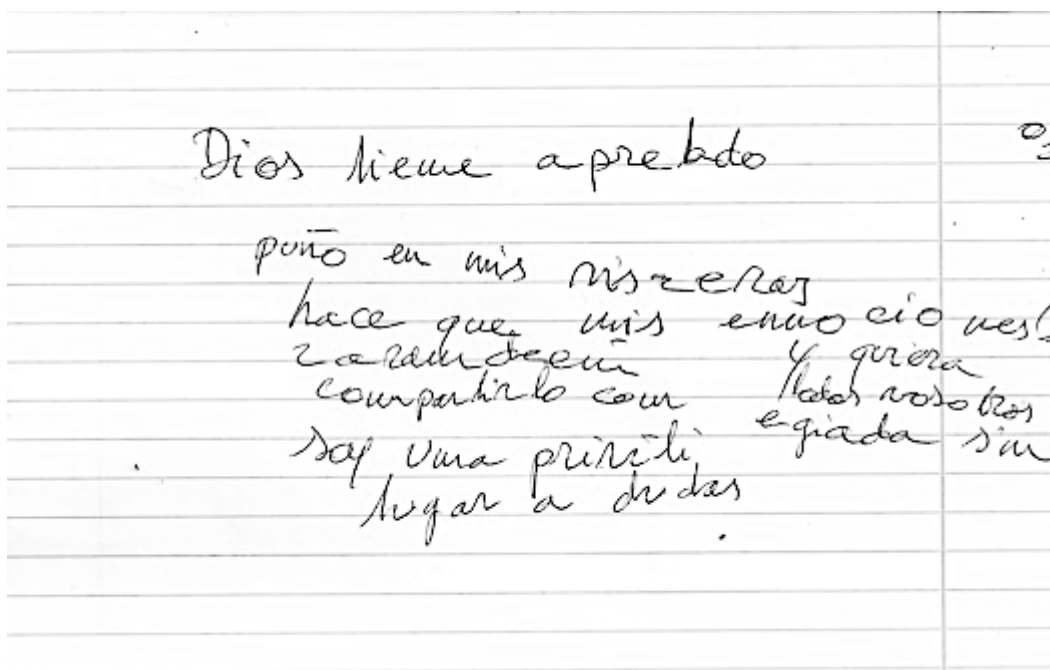 Dios tiene apretado
puño en mis visceras
hace que mis emociones
zarandeen y quiera
compartirlo con todos vosotros
soy una privilegiada sin
lugar a dudas